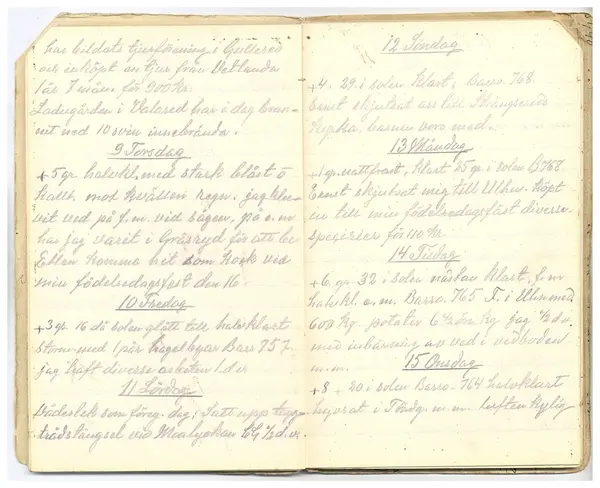 har bildats tjurförening i Gullered
och inköpt en tjur från Vetlanda
1 år 7 mån för 900 Kr.
Ladugården i Valared har i dag brun-
nit ned 10 svin innebrända.
9 Torsdag
+5 gr halvkl. med stark blåst o
kallt mot kvällen regn. jag klu-
vit ved på f.m. vid sågen, på e.m
har jag varit i Gräsryd för att be
Ellen komma hit som kock vid
min födelsedagsfest den 16.
10 Fredag
+3 gr 16 då solen glatt till halvklart
storm med 1 par hagelbyar Bar 757
jag haft diverse arbeten 1 d.v
11 Lördag
Väderlek som föreg. dag, Satt upp tagg
trådstängsel vid 6 1/2 d.v.
12 Söndag
+4. 29 i solen klart, Baro. 768
Ernst skjutsat oss till Strängsered
kyrka, barnen voro med.
13 Måndag
+1 gr nattfrost, klart 25 gr i solen B 768
Ernst skjutsat mig till Ulhn. köpt
in till min födelsedagsfäst diverse
specerier för 110 Kr.
14 Tisdag
+6 gr 32 i solen nästan klart, f.m
halvkl. e.m. Baro. 765 F. i Ulhn med
600 kg potates 6 1/2 öre kg jag 1/2 d.v.
med inbärning av ved i vedboden
m.m.
15 Onsdag
+8 20 i solen Baro. 764 halvklart
m.m. luften kylig